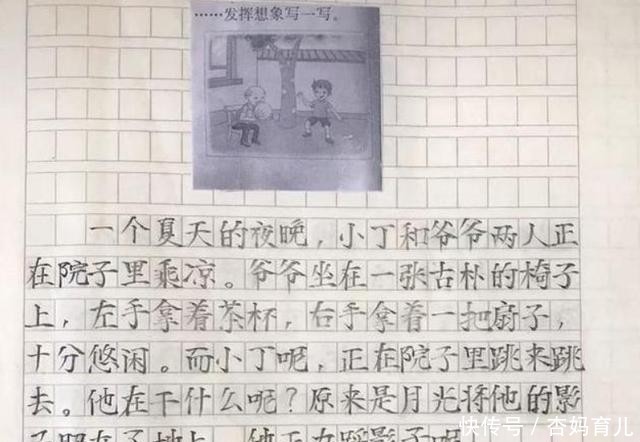 ……发挥想象写一写。
一个夏天的夜晚，小丁和爷爷两人正
在院子里乘凉。爷爷坐在一张古朴的椅子
上，左手拿着茶杯，右手拿着一把扇子，
十分悠闲。而小丁呢，正在院子里跳来跳
去。他在干什么呢？原来是月光将他的影
快传号/杏妈育儿